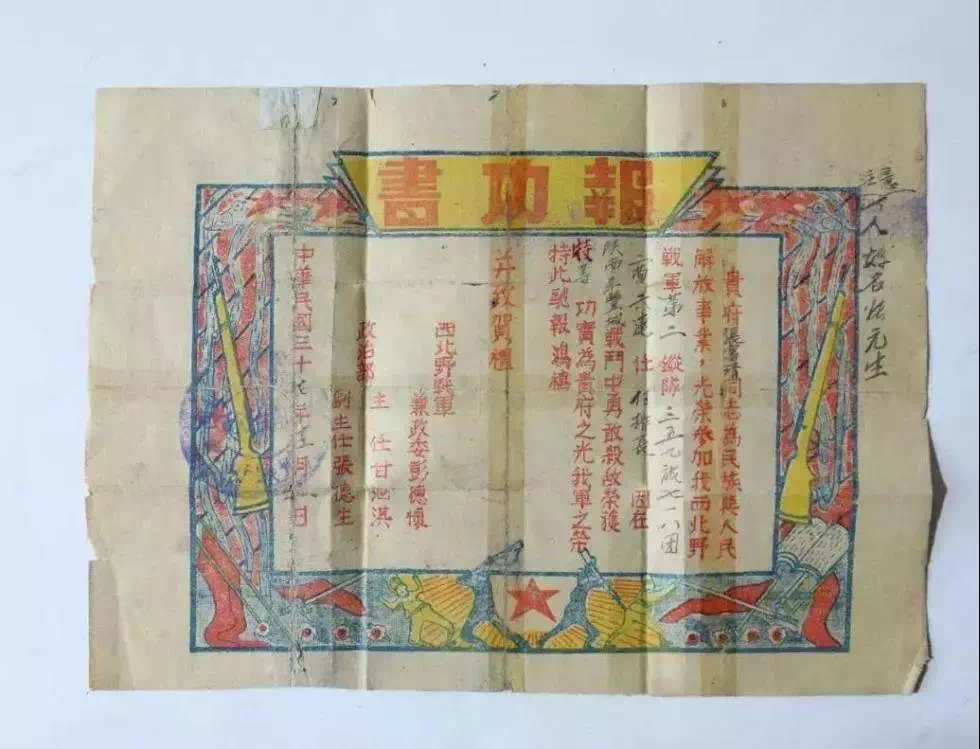 報功書
貴府張富清同志為民族與人民
解放事業，光榮參加我西北野
戰軍第二縱隊三五九旅七一八团
二營六連任付排長因在
陕西永豐城戰鬥中勇敢殺敵榮獲
特等功實為貴府之光我軍之榮
特此馳報鴻禧
并致賀禮
西北野戰軍
兼政委彭德懷
政治部
主任甘泗淇
副主任張德生
中華民國三十七年月日
注意
人姓名状元生